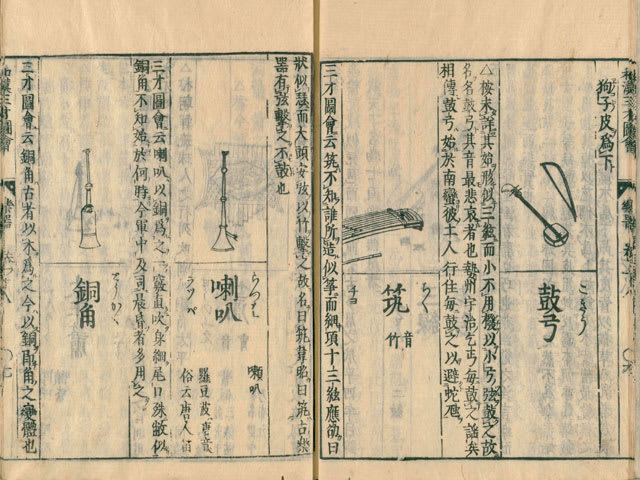 狗子皮為下
こきう
鼓弓
△按未詳其始形似三絃而小不用撥以小弓弦鼓之故
名鼓弓其音最悲哀者也勢州宇治乞丐毎鼓之謡矣
相傳鼓弓始於南蠻彼土人行住毎鼓之以避蛇虺
ちく
筑
音竹
三才圖會云筑不知誰所造似箏而細項十三絃應劭曰
狀似瑟而大頭安弦以竹擊之故名曰筑韋昭曰筑古樂
器有弦擊之不鼓也
喇叭
羅豆葩唐音
俗云唐人笛
三才圖會云喇叭以銅為之一竅直吹身細尾口殊敞似
銅角不知始於何時今軍中及司晨昏者多用之
銅角
三才圖會云銅角古者以木為之今以銅即角之變體也
和漢三才圖會